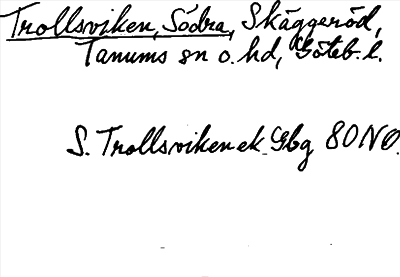 Trollsviken, Södra, Skäggeröd,
Tanums sn o. hd, Göteb. l.
S. Trollsviken ek. Gbg 80 NO.